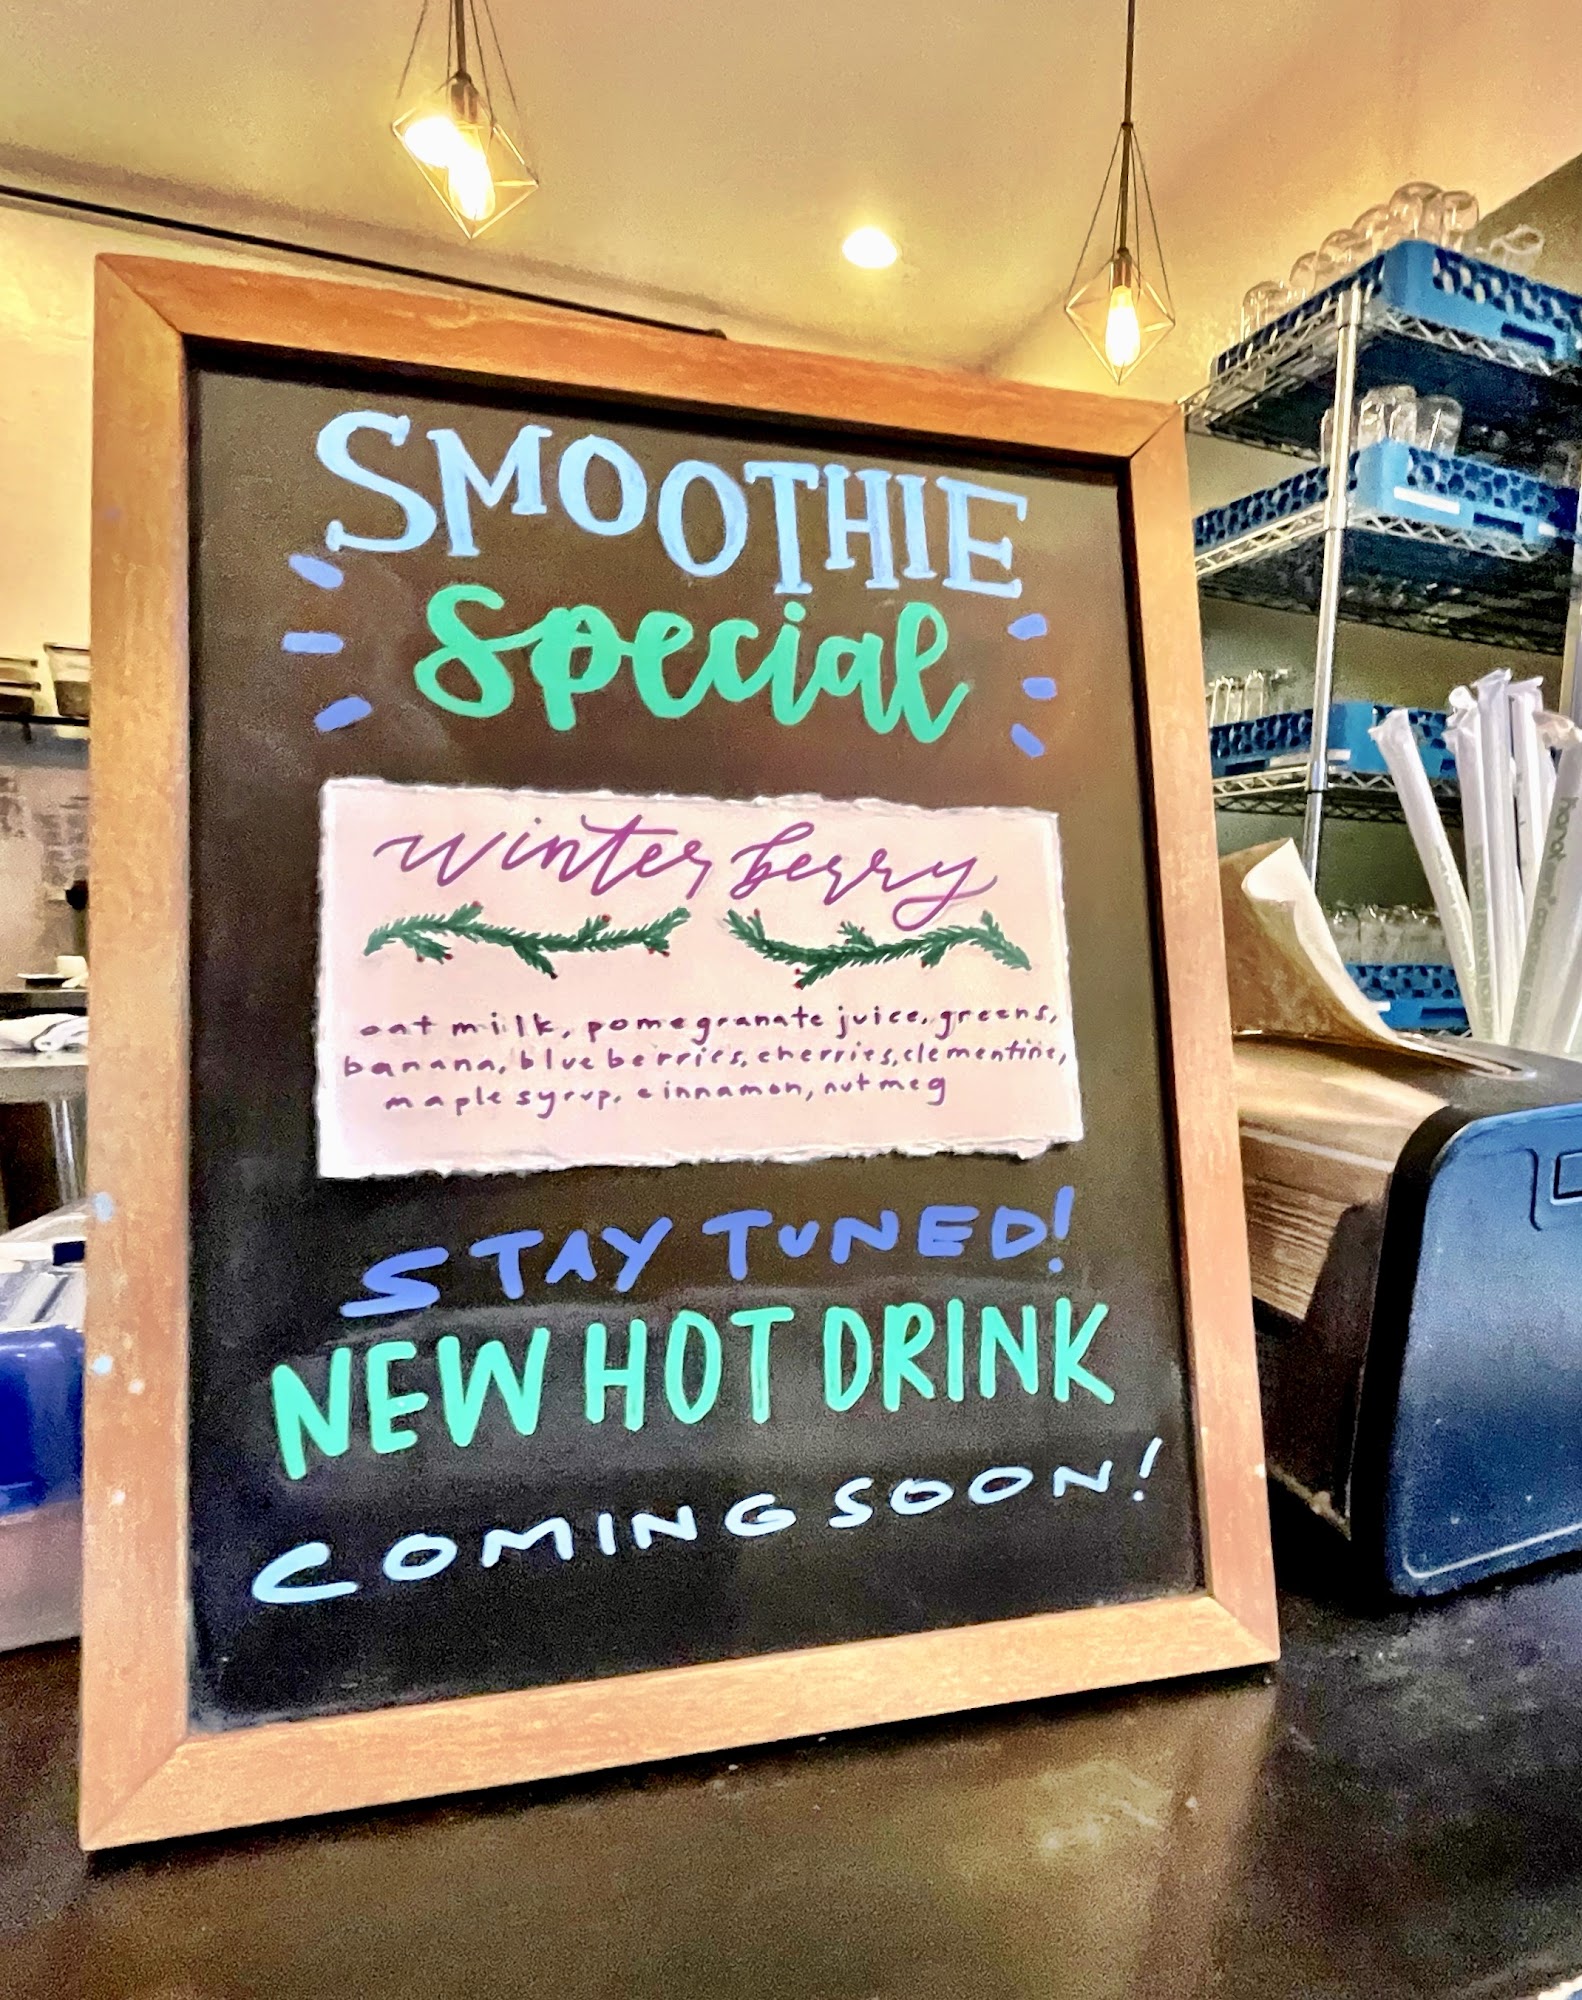 SMOOTHIE
Special
winter berry
oat milk, pomegranate juice, greens,
banana, blueberries, cherries, clementine,
maple syrup, cinnamon, nutmeg
STAY TUNED!
NEW HOT DRINK
COMING SOON!